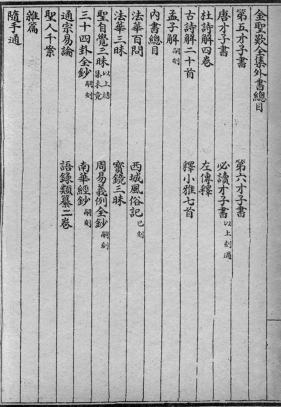 金聖歎全集外書總目
第五才子書　第六才子書
唐才子書　必讀才子書以上刻過
杜詩解四卷　左傳釋
古詩解二十首　釋小雅七首
孟子解嗣刻
內書總目
法華百問　西城風俗記已刻
法華三昧　寶鏡三昧
聖自覺三昧以上諸集未竟　周易義例全鈔嗣刻
三十四卦全鈔嗣刻　南華經鈔嗣刻
通宗易論　語錄類纂二卷
聖人千案
雜篇
隨手通